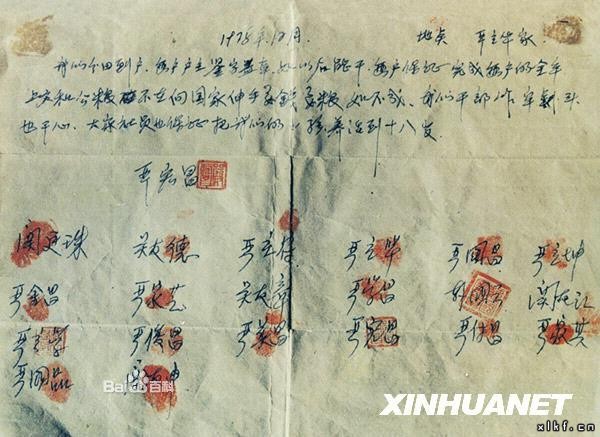 1978年12月. 地点 严立华家.
我们分田到户,每户户主签字盖章,如以后能干,每户保证完成每户的全年
上交和公粮不在向国家伸手要钱要粮,如不成,我们干部作牢剎头
也干心,大家社员也保证把我们的小孩养活到十八岁.
严宏昌
关廷珠 关友德 严立付 严立华 严国昌 严立坤
严金昌 严家芝 关友章 严学昌 韩国云 关友江
严立学 严俊昌 严美昌 严宏昌 严付昌 严家其
严国品 关友坤
Bai百科
XINHUANET
xlkf.cn